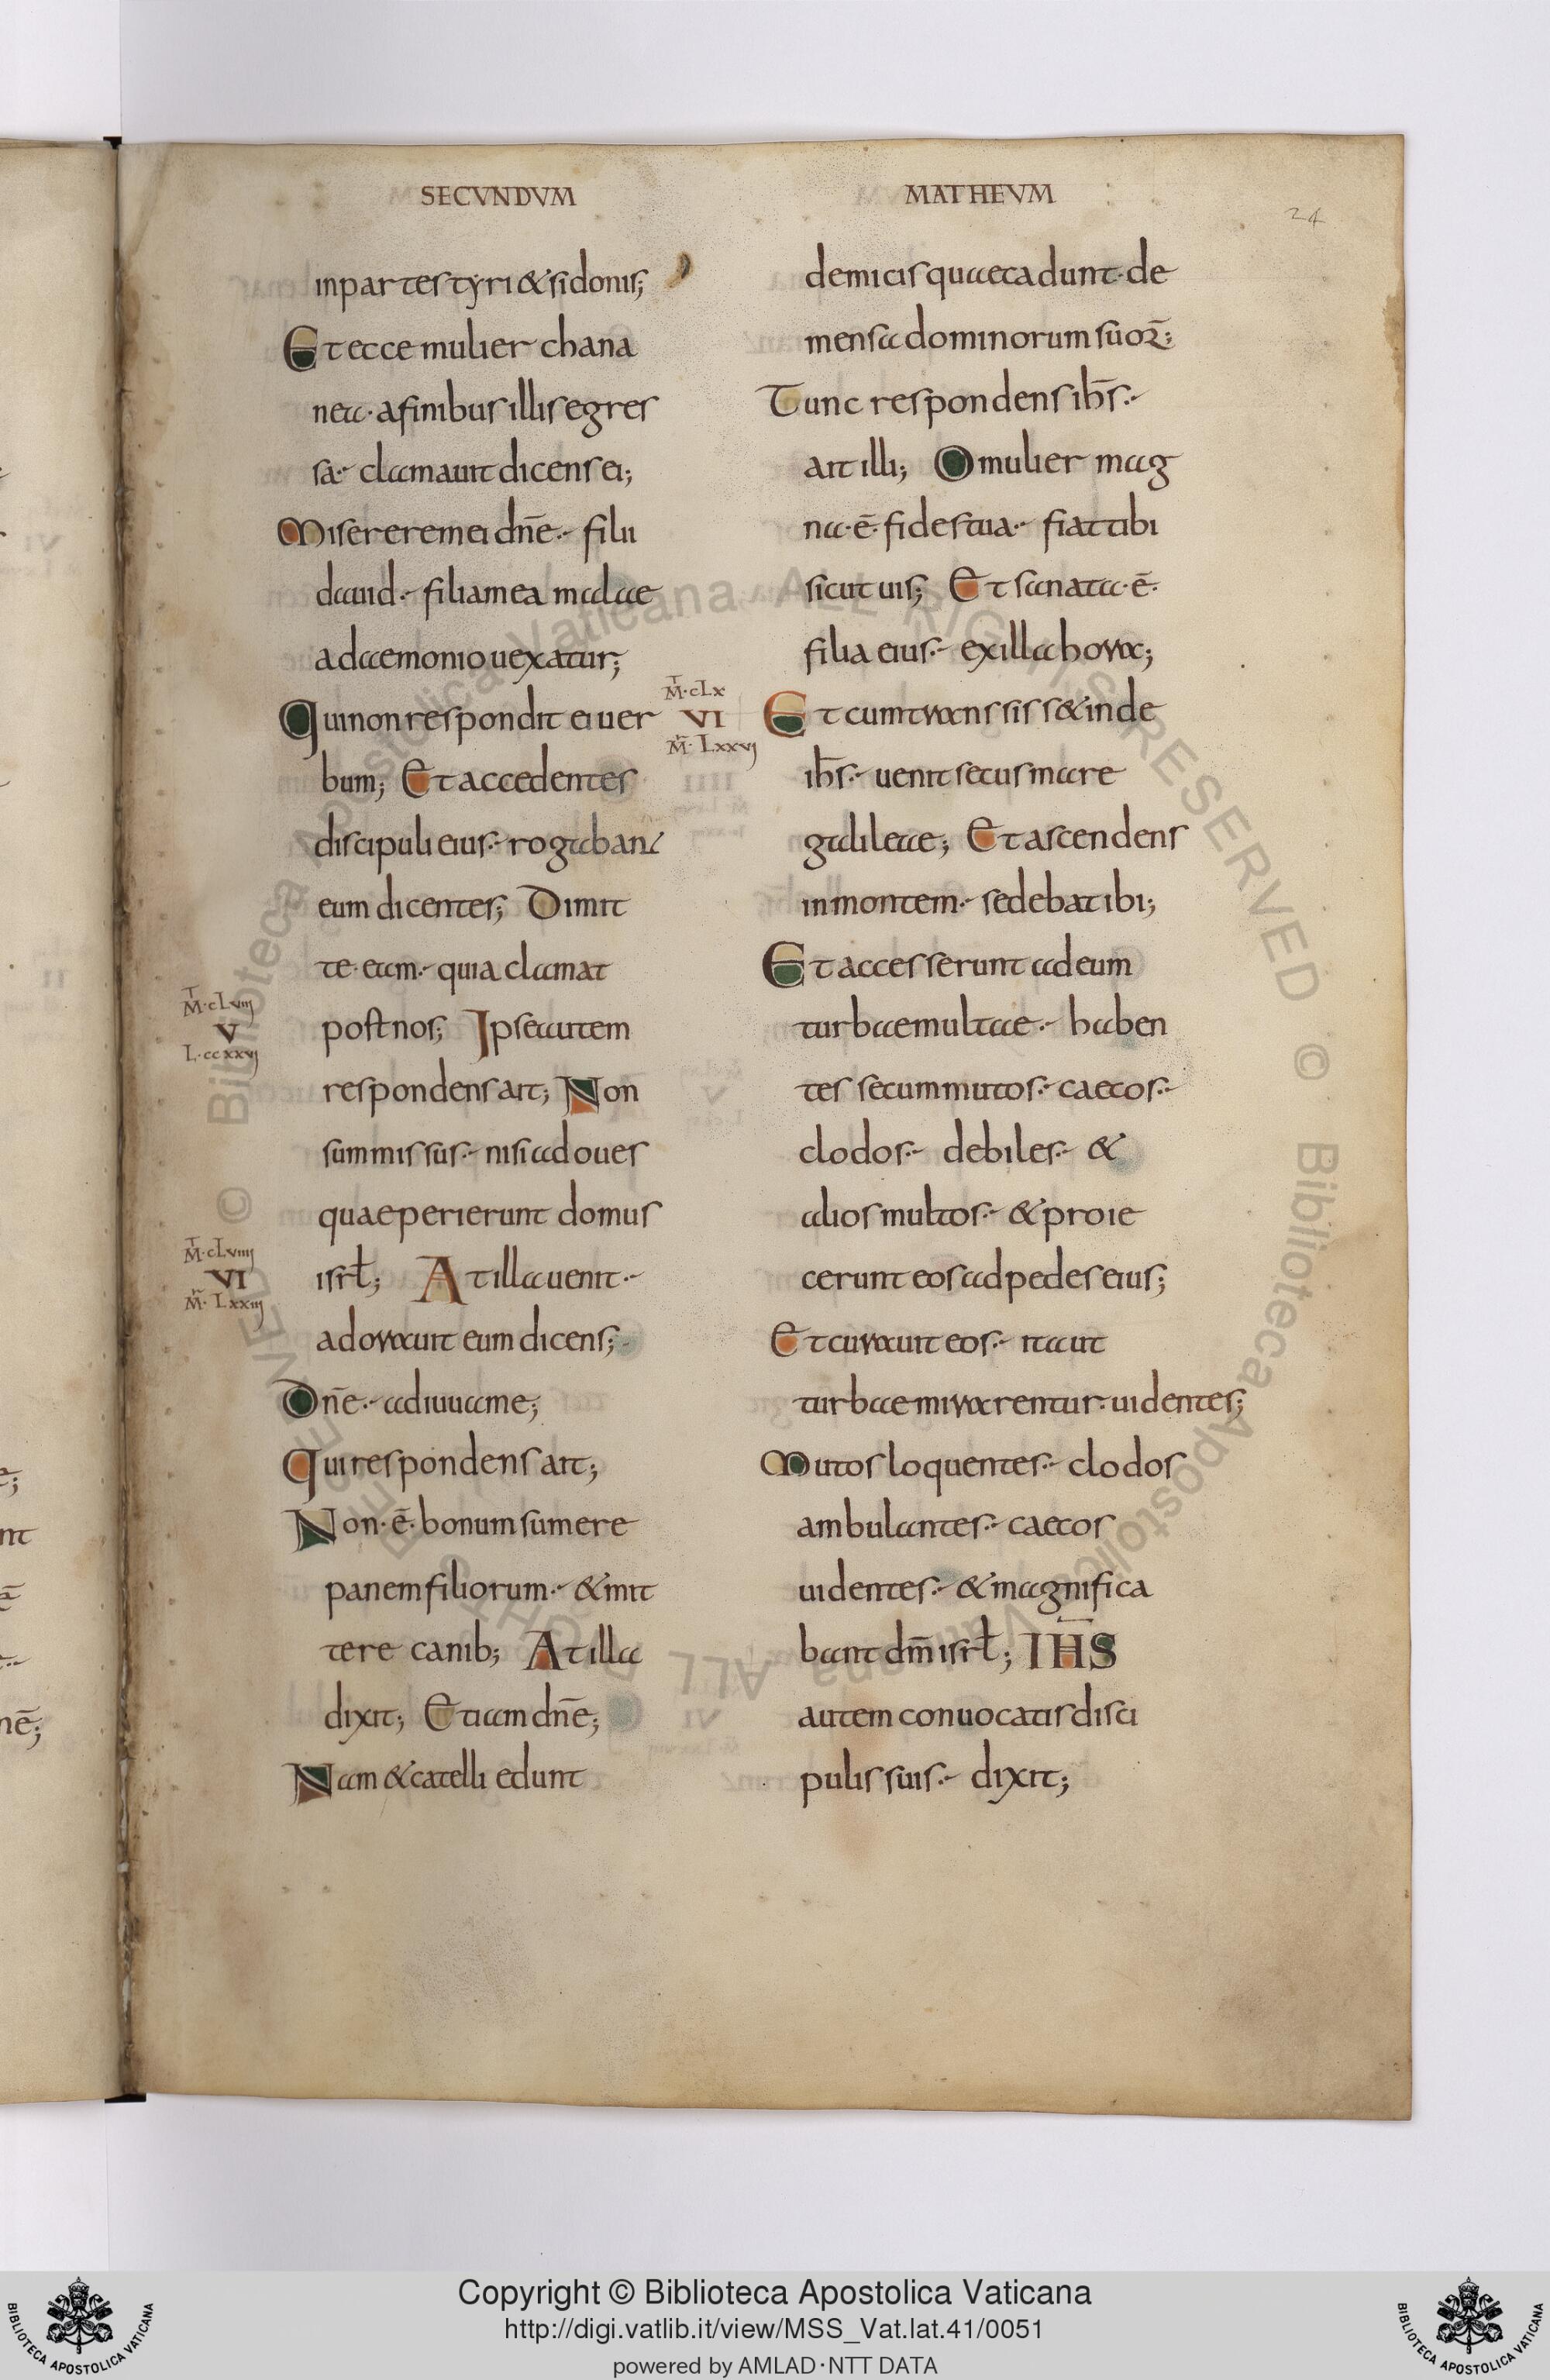 SECVNDVM
inpartes tyri & sidonis;
Et ecce mulier chana
nea· a finibus illis egres
sa·- clamauit dicens ei;
Miserere mei dnē·- filii
dauid·- filia mea malae
a daemonio uexatur;
Qui non respondit ei uer
bum; Et accedentes
discipuli eius·- rogaban
eum dicentes; Dimit
te· eam·- quia clamat
post nos; Ipse autem
respondens ait; Non
sum missus·- nisi ad oues
quae perierunt domus
isrł; At illa uenit·-
adorauit eum dicens;
Dnē·- adiuua me;
Qui respondens ait;
Non·ē·bonum sumere
panem filiorum·- & mit
tere canib; At illa
dixit; Etiam dnē;
Nam & catelli edunt
M·cLviii
V
L·ccxxvi
M·cLviiii
VI
M·Lxxiii
MATHEVM
24
de micis quae cadunt·de
mensa dominorum suoꝝ;
Tunc respondens ihs̄·-
ait illi; O mulier mag
na·ē·fides tua·- fiat tibi
sicut uis; Et sanata·ē·
filia eius·- ex illa hora;
Et cum transiss& inde
ihs̄·- uenit secus mare
galileae; Et ascendens
in montem·- sedebat ibi;
Et accesserunt ad eum
turbae multae·- haben
tes secum mutos·- caecos·-
clodos·- debiles·- &
alios multos·- & proie
cerunt eos ad pedes eius;
Et curauit eos·- ita ut
turbae mirarentur· uidentes;
Mutos loquentes·- clodos
ambulantes·- caecos
uidentes·- & magnifica
bant dm̄ isrł; IHS
autem conuocatis disci
pulis suis·- dixit;
M·cLx
VI
M·Lxxvi
© Biblioteca Apostolica Vaticana ALL RIGHTS RESERVED
© Biblioteca Apostolica Vaticana ALL RIGHTS RESERVED
BIBLIOTECA APOSTOLICA VATICANA
Copyright © Biblioteca Apostolica Vaticana
http://digi.vatlib.it/view/MSS_Vat.lat.41/0051
powered by AMLAD·NTT DATA
BIBLIOTECA APOSTOLICA VATICANA